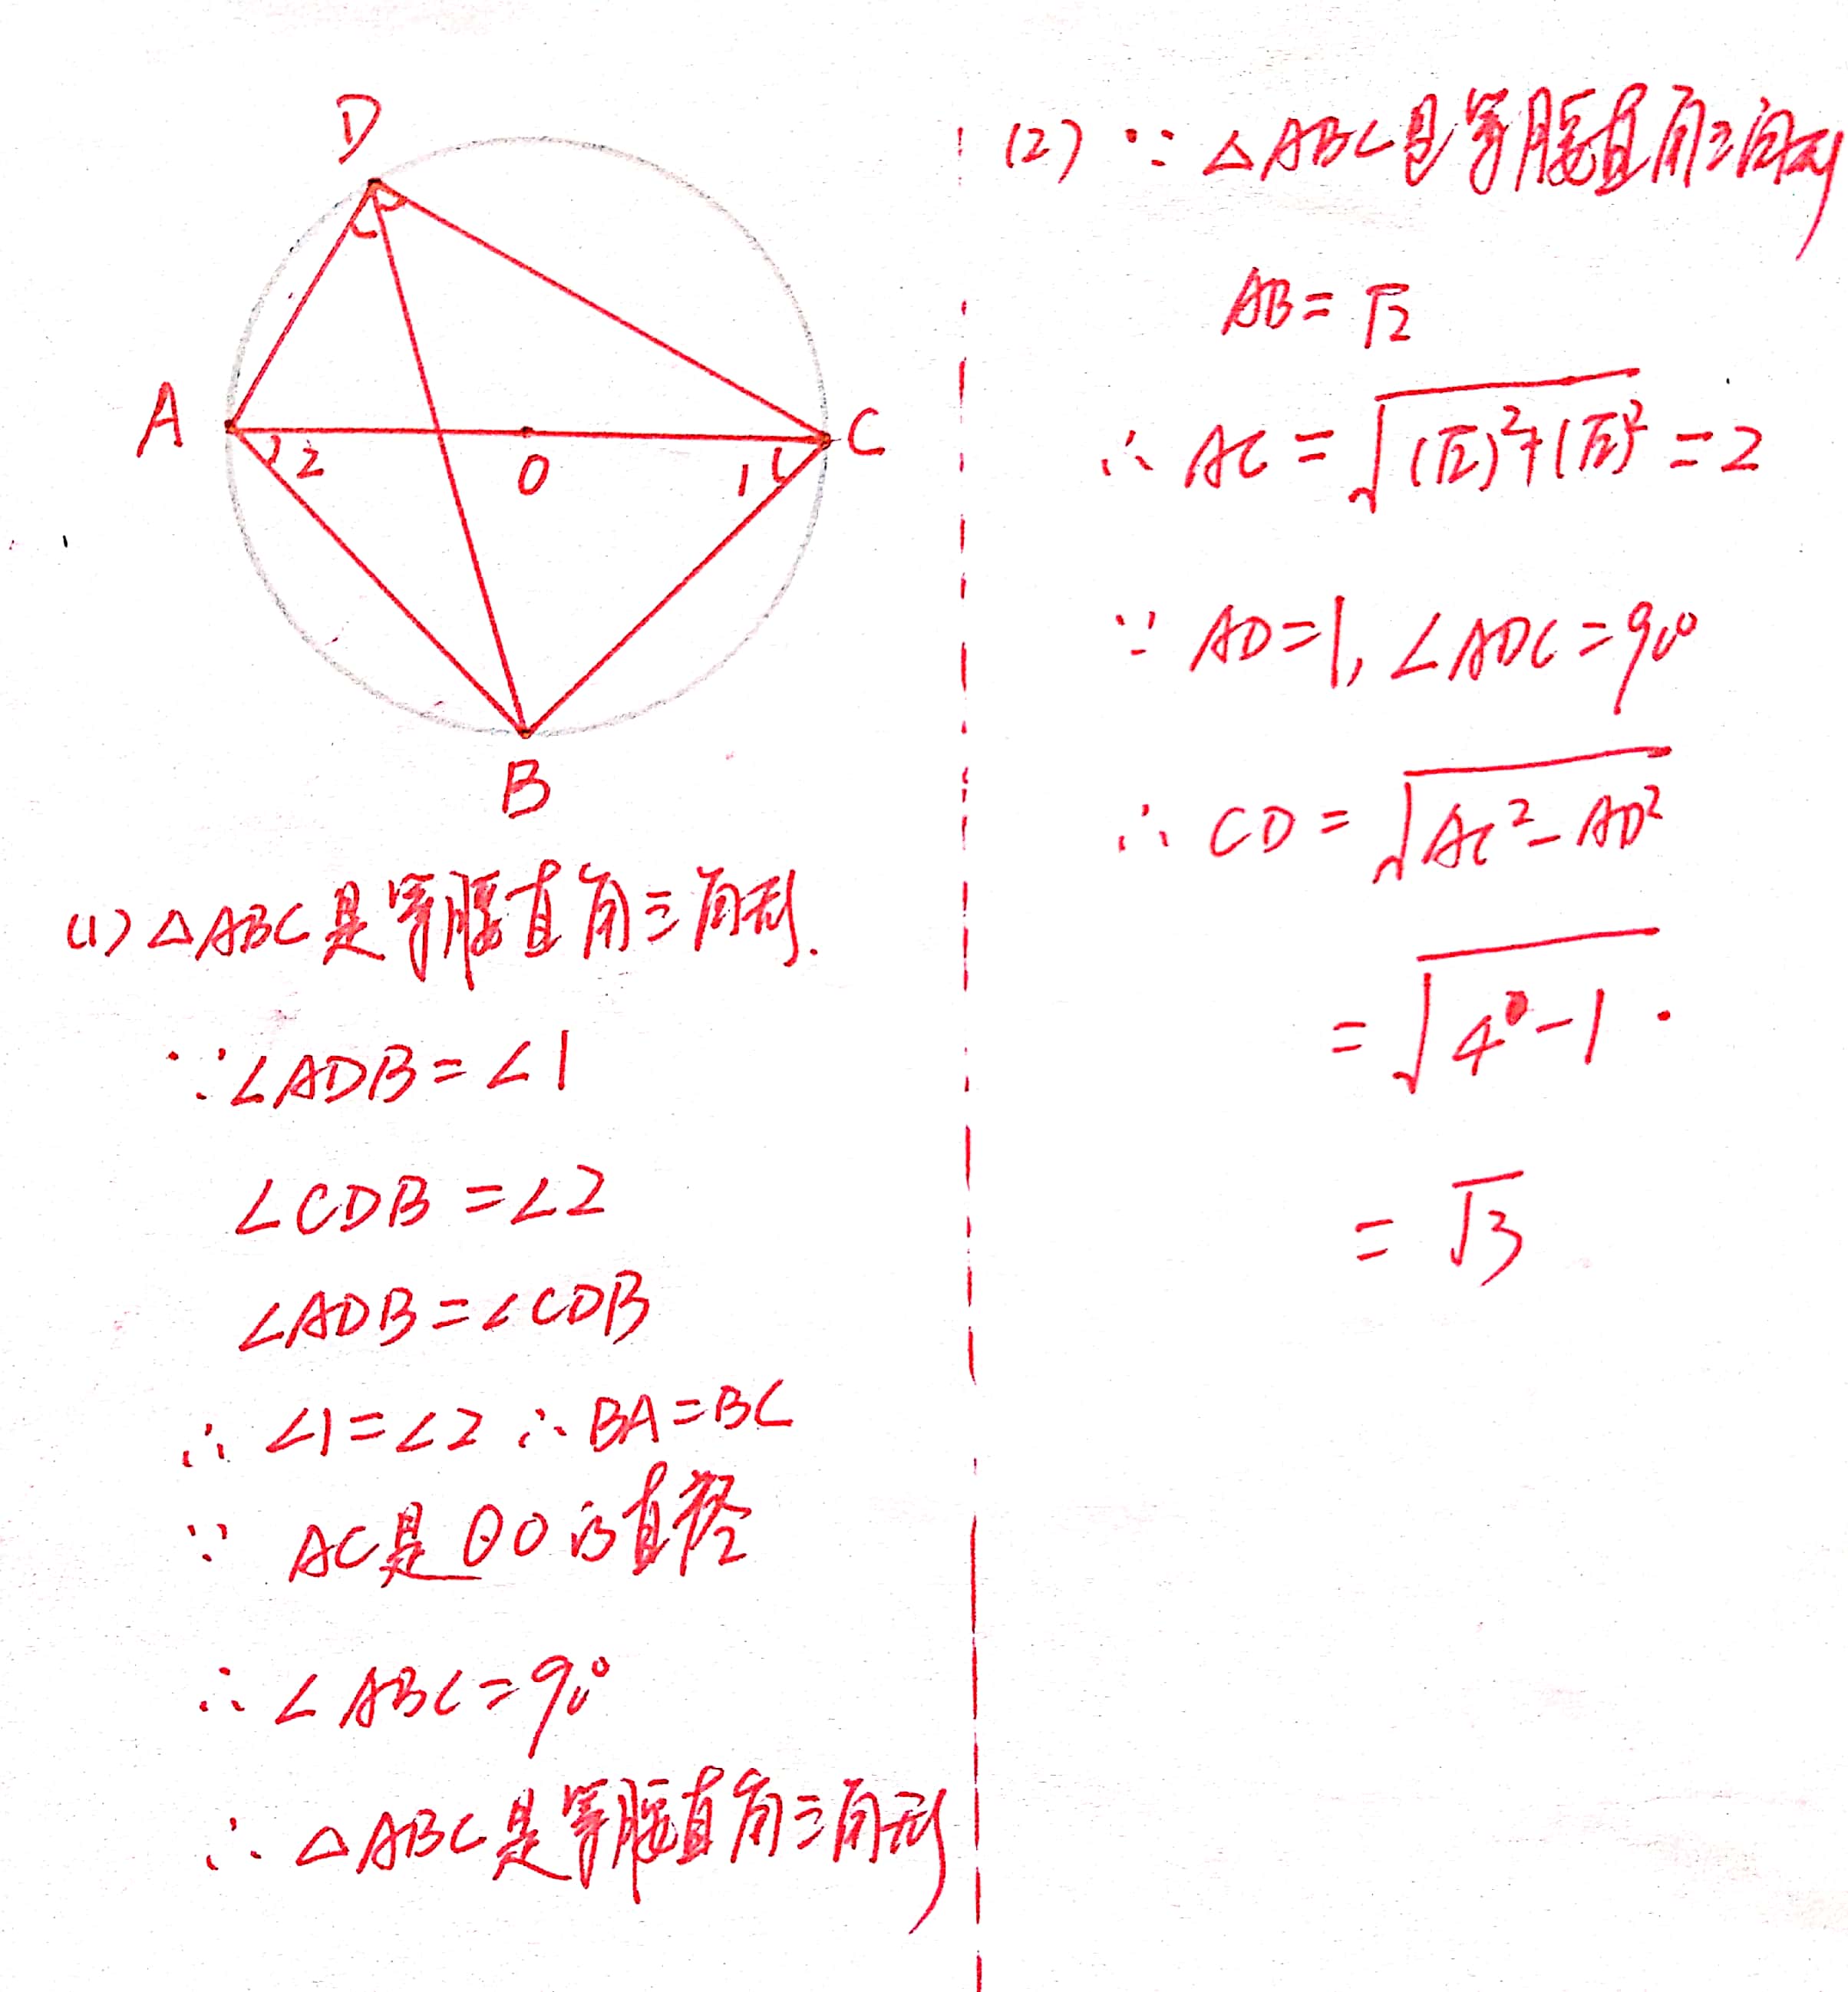 D
A
2
O
1
C
B
(1) △ABC是等腰直角三角形.
∵∠ADB=∠1
∠CDB=∠2
∠ADB=∠CDB
∴ ∠1=∠2 ∴ BA=BC
∵ AC是⊙O的直径
∴ ∠ABC=90°
∴ △ABC是等腰直角三角形
(2) ∵ △ABC是等腰直角三角形
AB=√2
∴ AC=√((√2)²+(√2)²)=2
∵ AD=1, ∠ADC=90°
∴ CD=√(AC²-AD²)
=√(4-1).
=√3